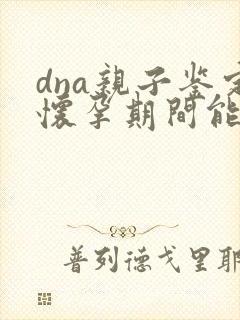 dna親子鉴定
懷孕期間能
普列德戈里耶